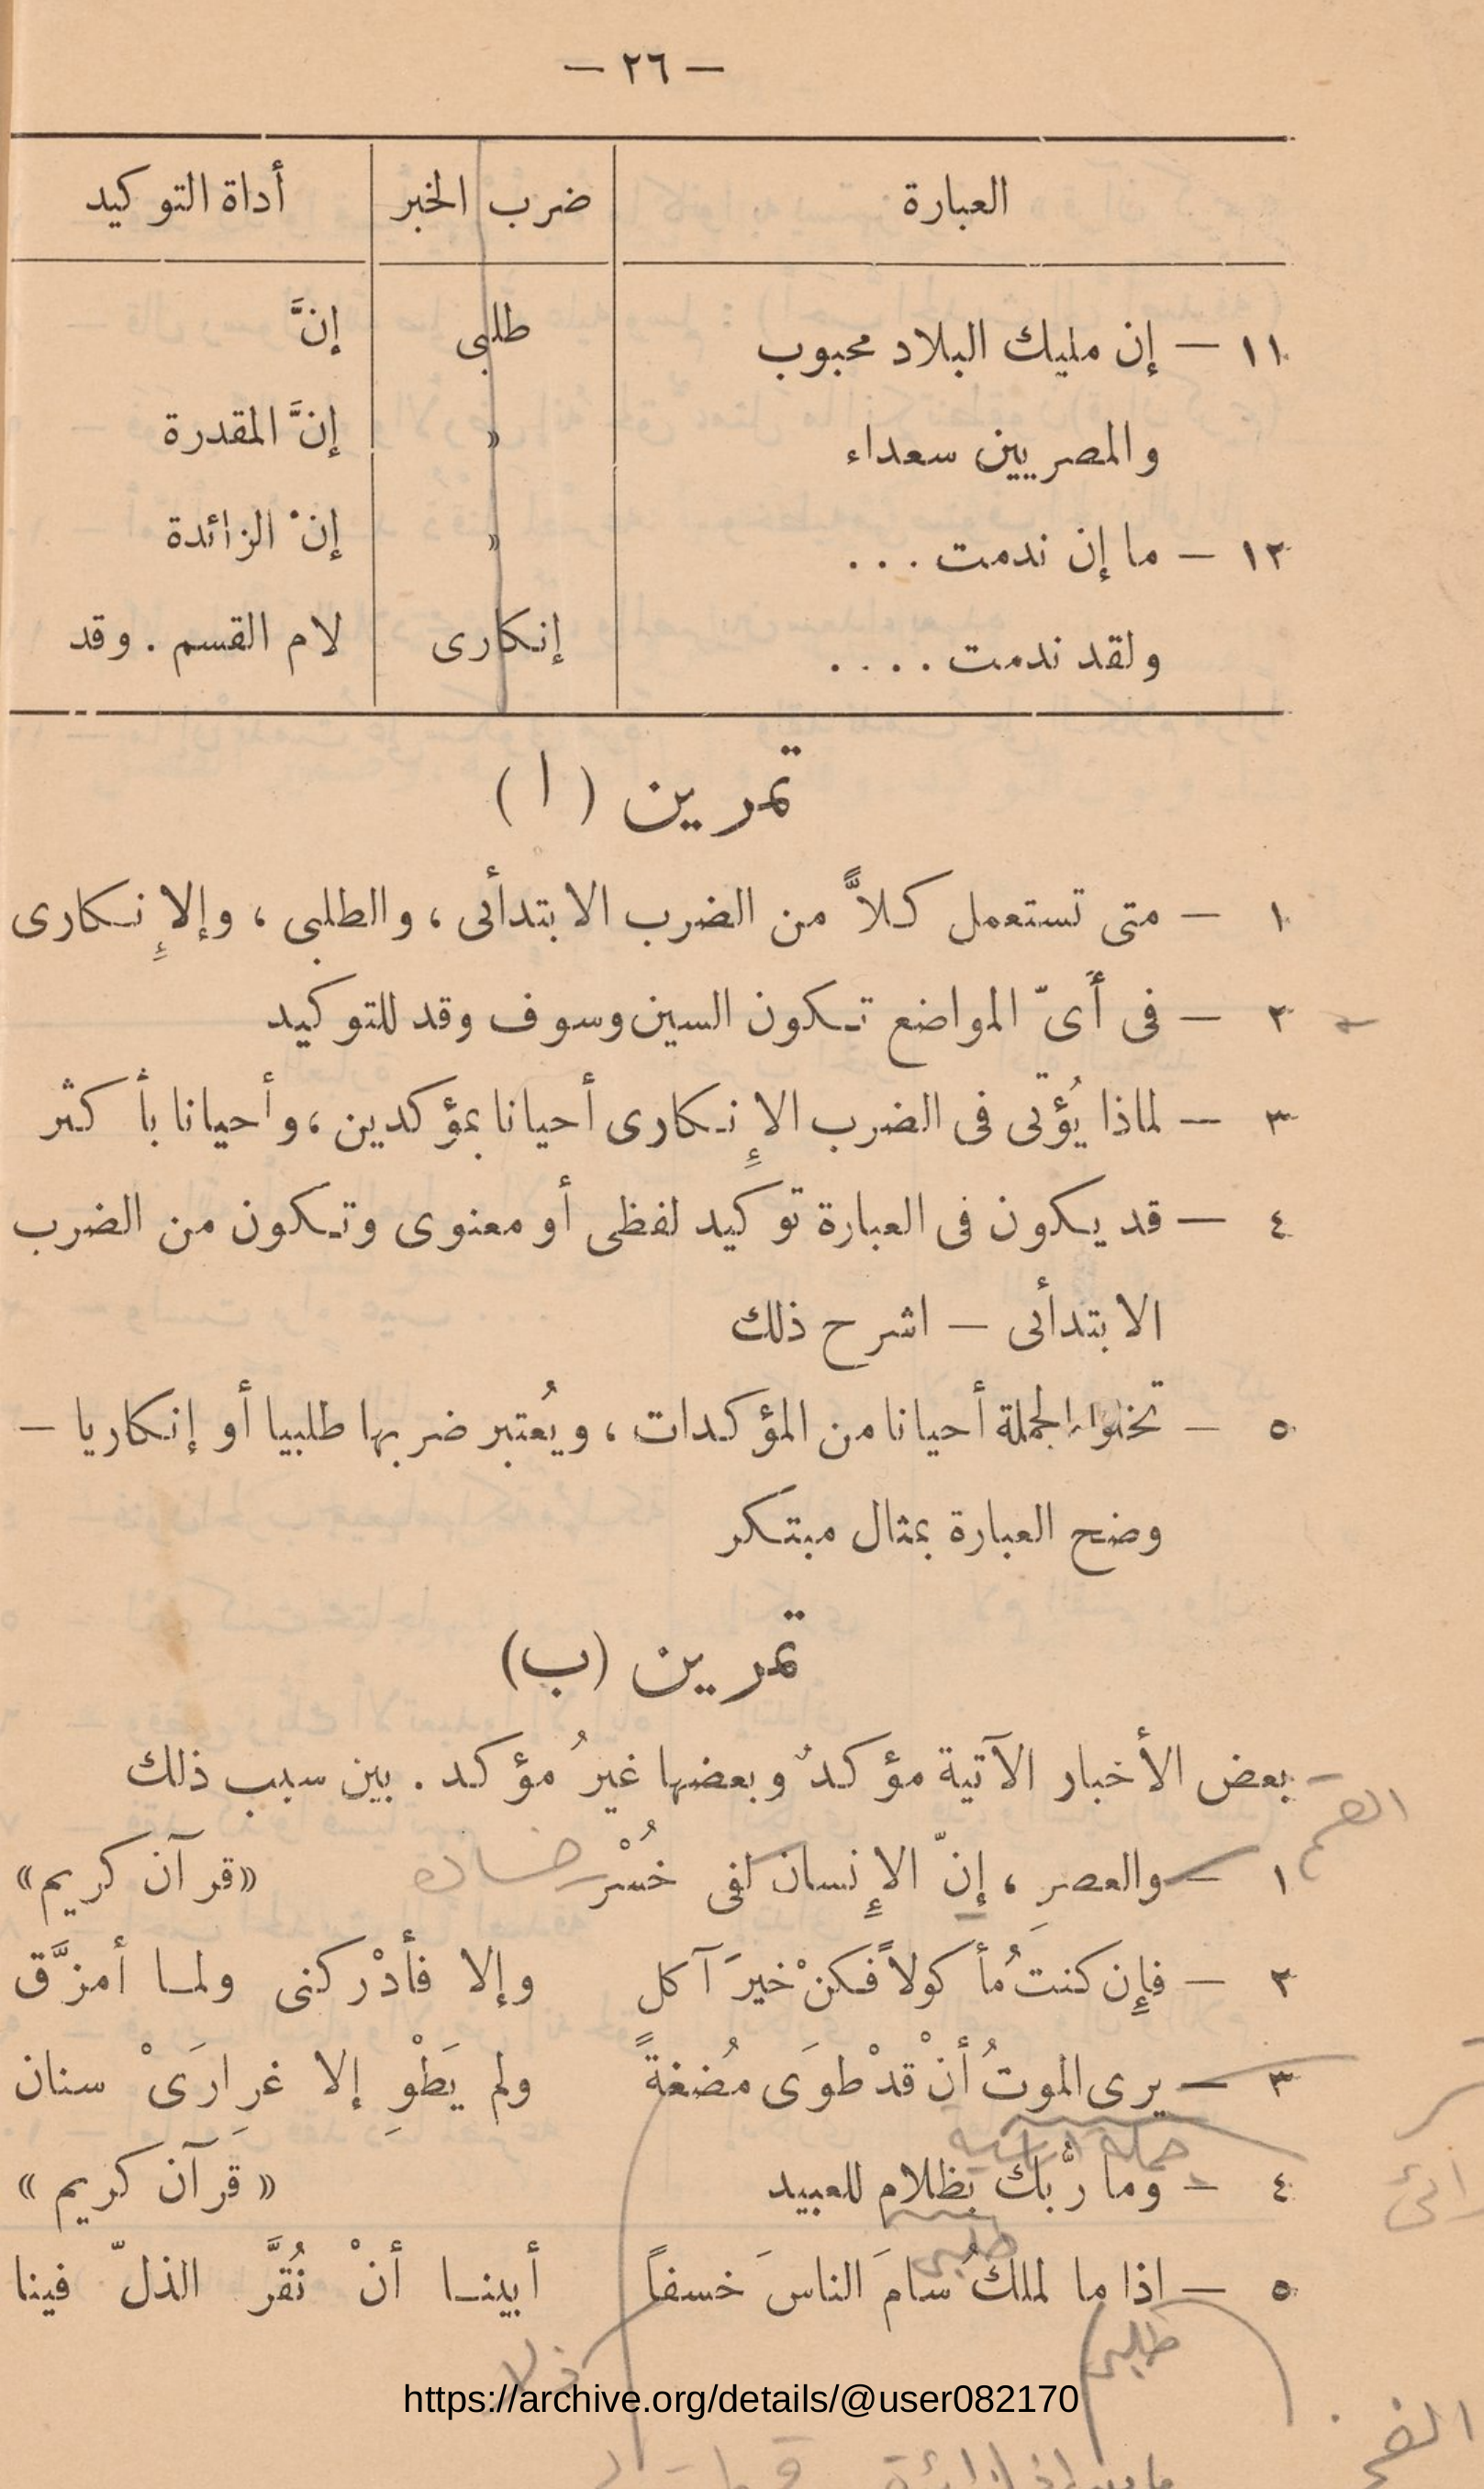 — ٢٦ —
العبارة ضرب الخبر أداة التوكيد
١١ — إن مليك البلاد محبوب طلبى إنَّ
والمصريين سعداء » إنَّ المقدرة
١٢ — ما إن ندمت . . . » إنْ الزائدة
ولقد ندمت . . . . إنكارى لام القسم . وقد
تمرين ( ا )
١ — متى تستعمل كلاًّ من الضرب الابتدأئى ، والطلبى ، وإلإِنكارى
٢ — فى أَىّ المواضع تكون السين وسوف وقد للتوكيد
٣ — لماذا يُؤتى فى الضرب الإِنكارى أحيانا بمؤكدين ، وأحيانا بأكثر
٤ — قد يكون فى العبارة توكيد لفظى أو معنوى وتكون من الضرب
الابتدأئى — اشرح ذلك
٥ — تخلوا الجملة أحيانا من المؤكدات ، ويُعتبر ضربها طلبيا أو إنكاريا —
وضح العبارة بمثال مبتكر
تمرين (ب)
بعض الأخبار الآتية مؤكدٌ وبعضها غيرُ مؤكد . بين سبب ذلك
١ — والعصرِ ، إنّ الإِنسان لفى خُسْر خساره «قرآن كريم»
٢ — فإِن كنتَ مأكولاً فكنْ خيرَ آكل وإلا فأدْركنى ولما أمزَّق
٣ — يرى الموتُ أنْ قدْ طوَى مُضغةً ولم يَطْوِ إلا غرِارَىْ سنان
جملة
٤ — وما ربُّك بظلام للعبيد « قرآن كريم »
طلبى
٥ — اذا ما لملكُ سامَ الناسَ خسفاً أبينا أنْ نُقرَّ الذلّ فينا
طلبى ذلا
https://archive.org/details/@user082170